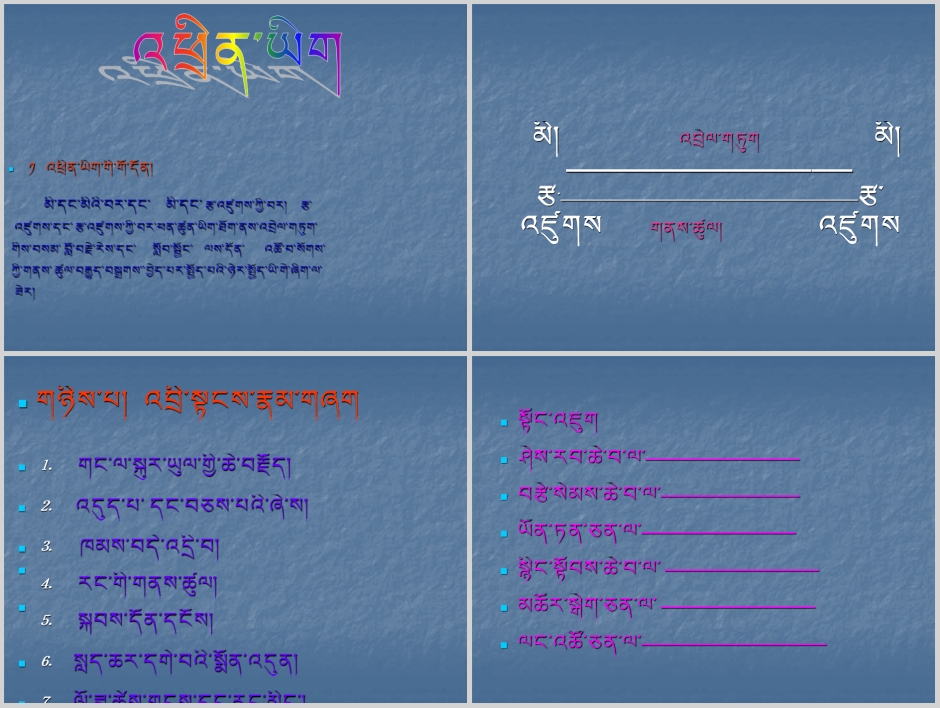 འཕྲིན་ཡིག
༡ འཕྲིན་ཡིག་གི་གོ་དོན།
མི་དང་མིའི་བར་དང་ མི་དང་རྩ་འཛུགས་ཀྱི་བར། རྩ་
འཛུགས་དང་རྩ་འཛུགས་ཀྱི་བར་ཕན་ཚུན་ཡིག་ཐོག་ནས་འབྲེལ་གཏུག་
གིས་བསམ་བློ་བརྗེ་རེས་དང་ སློབ་སྦྱོང་ ལས་དོན་ འཚོ་བ་སོགས་
ཀྱི་གནས་ཚུལ་བརྒྱུད་བསྒྲགས་བྱེད་པར་སྤྱོད་པའི་ཉེར་སྤྱོད་ཡི་གེ་ཞིག་ལ་
ཟེར།
མི། འབྲེལ་གཏུག མི།
རྩ་ རྩ་
འཛུགས གནས་ཚུལ། འཛུགས
གཉིས་པ། འབྲི་སྟངས་རྣམ་གཞག
1. གང་ལ་སྐུར་ཡུལ་གྱི་ཆེ་བརྗོད།
2. འདུད་པ་དང་བཅས་པའི་ཞེ་ས།
3. ཁམས་བདེ་འདྲི་བ།
4. རང་གི་གནས་ཚུལ།
5. སྐབས་དོན་དངོས།
6. སླད་ཆར་དགེ་བའི་སྨོན་འདུན།
7.
སྟོང་འཇུག
ཤེས་རབ་ཆེ་བ་ལ་
བརྩེ་སེམས་ཆེ་བ་ལ་
ཡོན་ཏན་ཅན་ལ་
སྙིང་སྟོབས་ཆེ་བ་ལ་
མཆོར་སྒེག་ཅན་ལ་
ལང་འཚོ་ཅན་ལ་